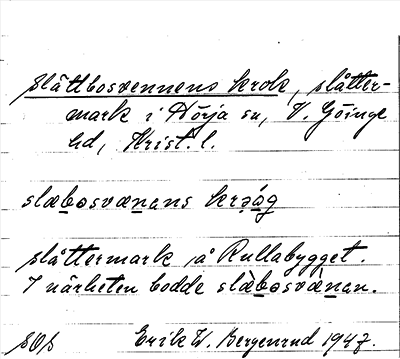 Slättbosvennens krok, slåtter-
mark i Hörja sn, V. Göinge
hd, Krist. l.
slæbosvænans krǝág
slåttermark å Rullabygget.
I närheten bodde slæ̀bosvæ̀nan.
Erik W. Bergenrud 1947.